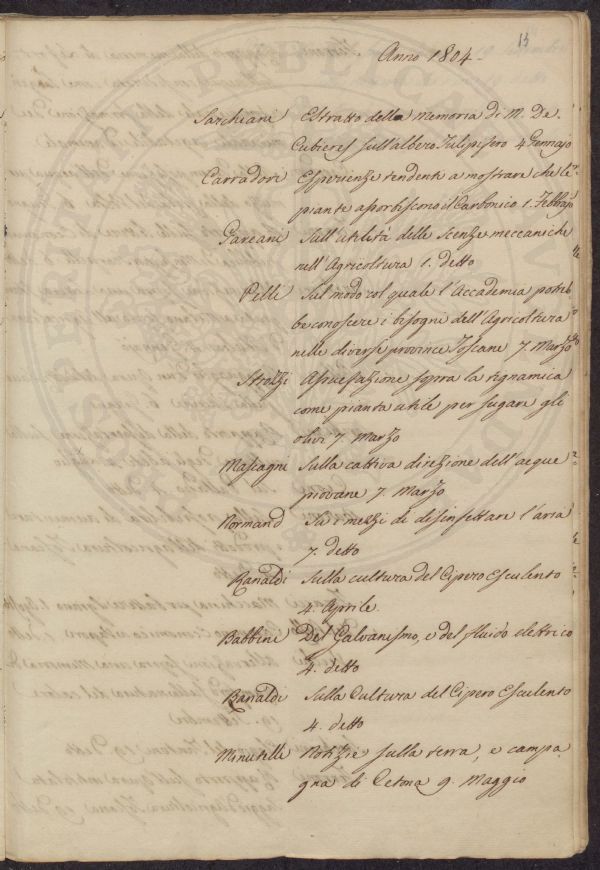 13
Anno 1804
Sarchiani Estratto della memoria di M. De
Cubieres sull'albero Tulipifero 4 Gennajo
Carradori Esperienze tendenti a mostrare che le
piante assorbiscono il Carbonico 1. Febbrajo
Pareani Sull'utilità delle Scenze meccaniche
nell'Agricoltura 1. detto
Pelli Sul modo col quale l'Accademia potreb
be conoscere i bisogni dell'Agricoltura
nelle diverse province Toscane 7. Marzo
Strozzi sopra la rignamica
come pianta utile per sugare gli
olivi 7. Marzo
Mascagni Sulla cattiva direzione dell'acque
piovane 7. Marzo
Normand Su i mezzi di disinfettare l'aria
7. detto
Ranaldi Sulla cultura del Cipero Esculento
4. Aprile
Babbini Del Galvanismo, e del fluido elettrico
4. detto
Ranaldi Sulla Cultura del Cipero Esculento
4. detto
Minutelli Notizie sulla terra, e campa
gna di Cetona 9. Maggio